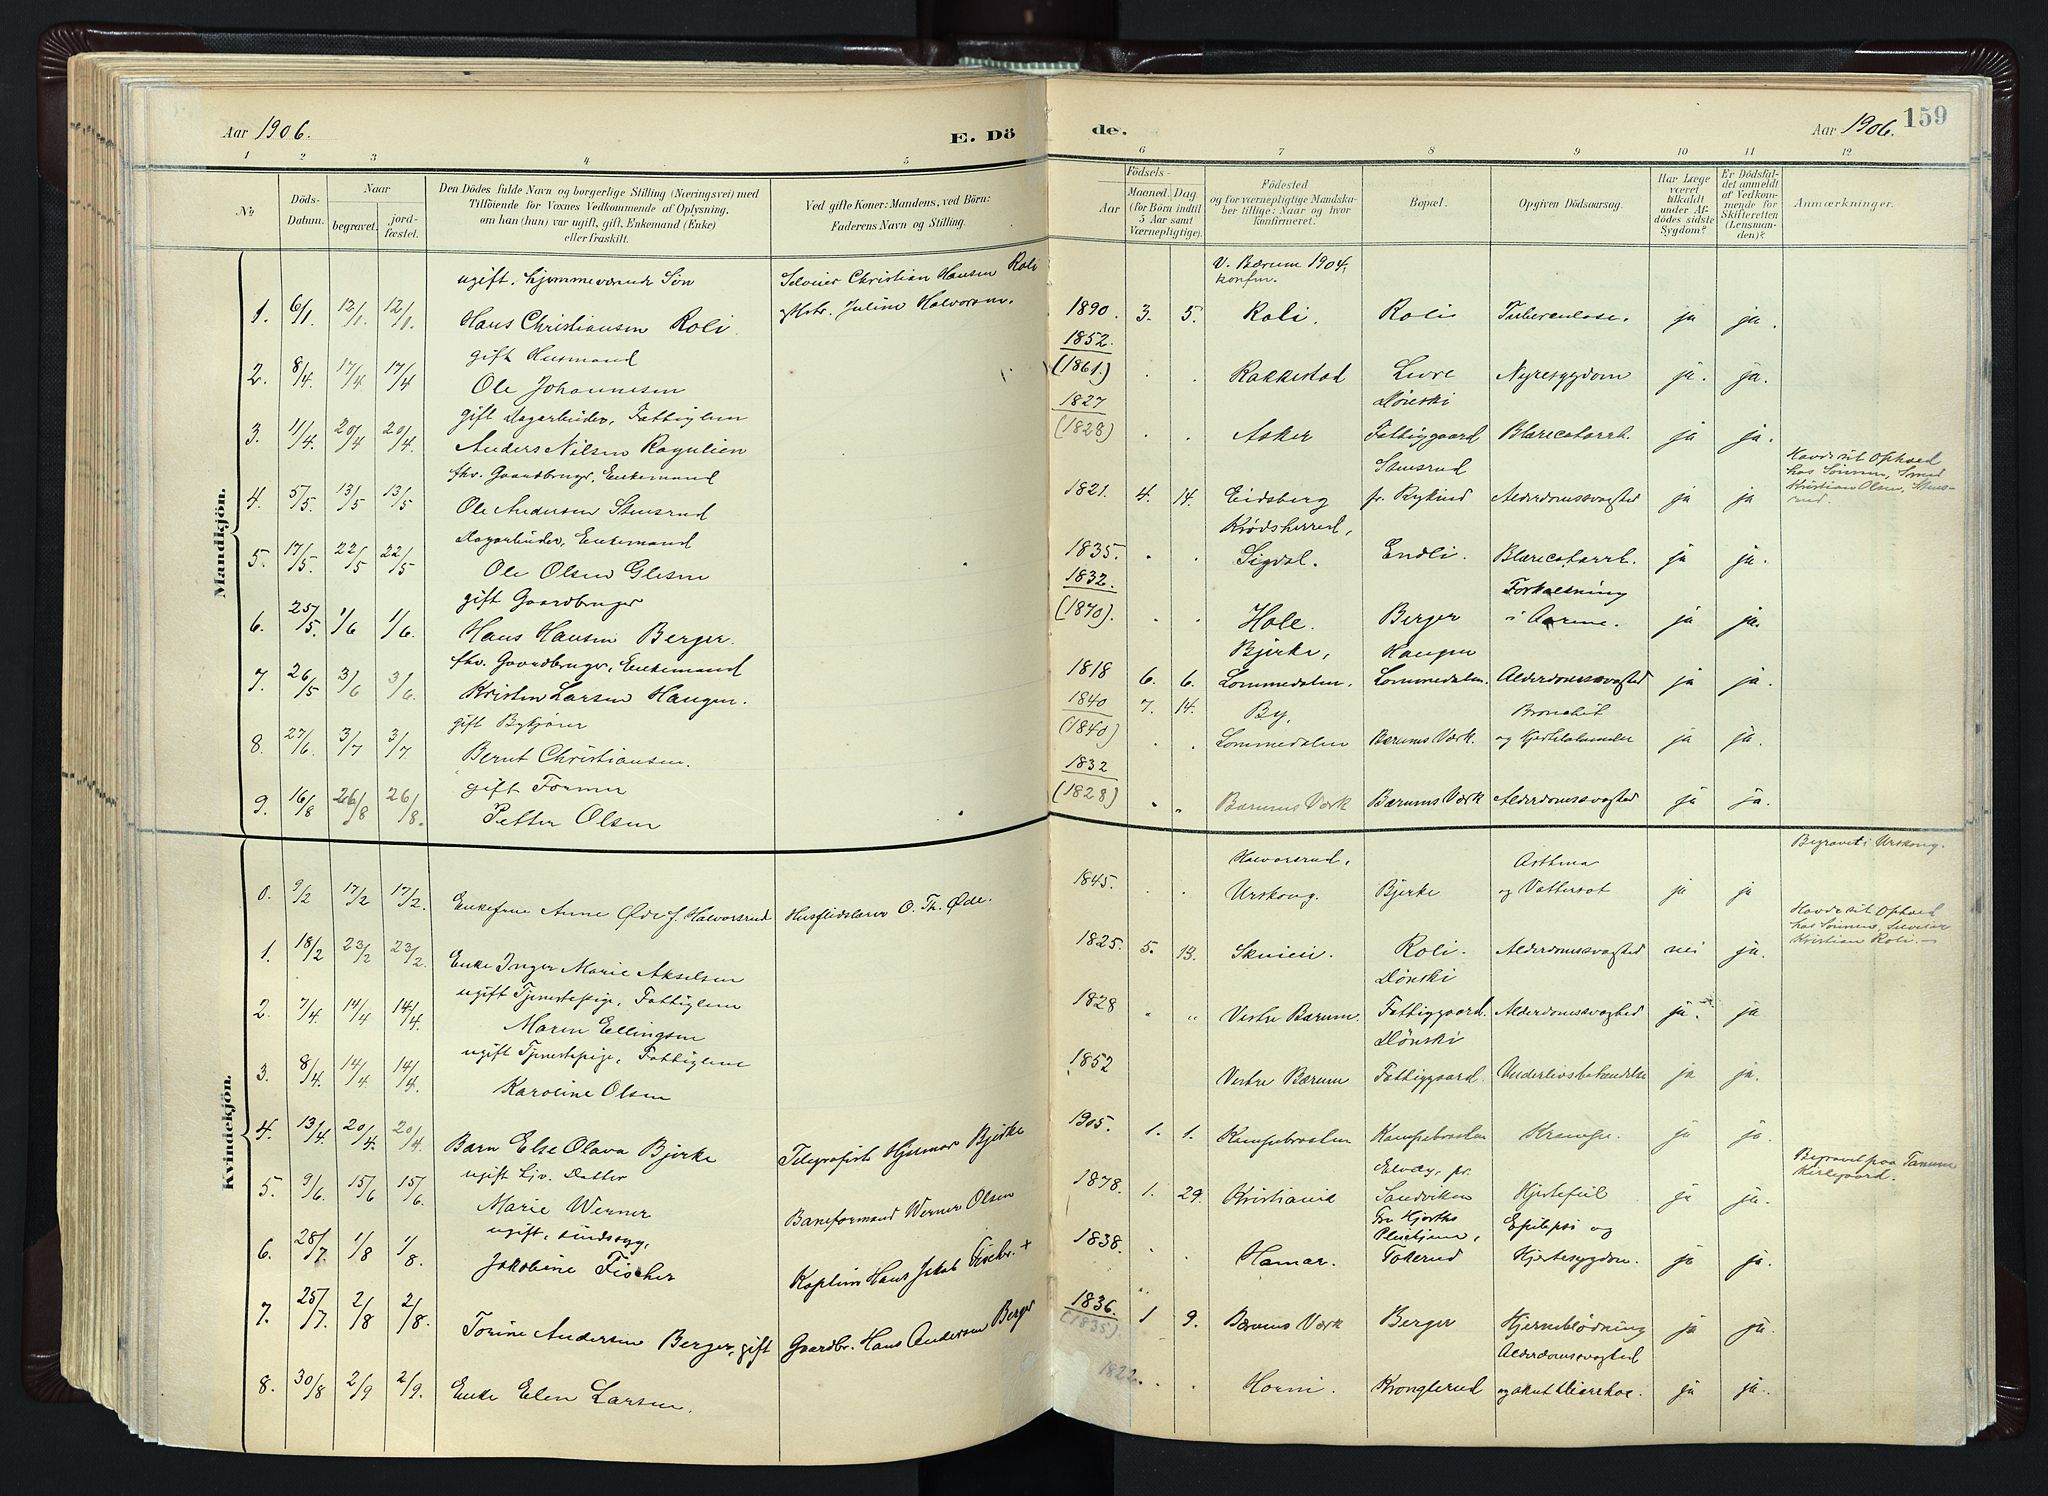 Aar 1906.
E. Dö
de.
Aar 1906.
159
1 2 3 4 5 6 7 8 9 10 11 12
No
Døds-Datum.
Naar
begravet.
jord-fæstet.
Den Dødes fulde Navn og borgerlige Stilling (Næringsvei) med
Tilföiende for Voxnes Vedkommende af Oplysning,
om han (hun) var ugift, gift, Enkemand (Enke)
eller fraskilt.
Ved gifte Koner: Mandens, ved Börn:
Faderens Navn og Stilling.
Födsels-
Aar
Maaned Dag
(for Börn indtil
5 Aar samt
Værnepligtige).
Födested
og for værnepligtige Mandskaber tillige: Naar og hvor
konfirmeret.
Bopæl.
Opgiven Dödsaarsag.
Har Læge
været
tilkaldt
under Afdödes sidste
Sygdom?
Er Dödsfaldet anmeldt
af Vedkommende for
Skifteretten
(Lensmanden)?
Anmærkninger.
Mandkjön.
ugift, hjemmeværende Søn
Hans Christiansen Roli.
1. 6/1 12/1 12/1
Selveier Christian Hansen Roli
Hstr. Juline Halvorsen.
1890. 3. 5.
V. Bærum 1904.
konfirm.
Roli. Roli Tuberculose. ja ja.
2. 8/4. 17/4 17/4
gift Husmand
Ole Johannesen
1852. (1861.) Rakkestad Lure Nyresygdom ja. ja.
3. 11/4. 20/4 20/4.
gift Dagarbeider, Fattiglem
Anders Nilsen Ragulien
1827 (1828) Asker
Dönski
Fattiggaard Blærecatarrh. ja ja.
4. 5/5. 13/5 13/5
fhv. Gaardbruger, Enkemand
Ole Andersen Stensrud
1821. 4. 14. Eidsberg
Stensrud
pr. Rykind Alderdomssvaghed ja ja
Havde sit Ophold
hos Sønnen, Smed
Kristian Olsen, Stens-
rud.
5. 17/5. 22/5 22/5
Dagarbeider, Enkemand
Ole Olsen Glesne
1835.
Krødsherred,
Sigdal. Endli. Blærecatarrh. ja ja.
6. 25/5. 1/6 1/6.
gift Gaardbruger
Hans Hansen Berger.
1832. (1870). Hole. Berger
Forkalkning
i Aarene. ja ja.
7. 26/5 3/6 3/6.
fhv. Gaardbruger, Enkemand
Kristen Larsen Haugen.
1818 6. 6.
Bjerke,
Lommedalen.
Haugen
Lommedalen. Alderdomssvaghed ja ja.
8. 27/6. 3/7 3/7.
gift Bykjører
Bernt Christiansen.
1840 (1840) 7. 14.
By,
Lommedalen Bærums Værk.
Bronchit
og Hjertelammelse ja ja.
9. 16/8 26/8 26/8.
gift Former
Petter Olsen
1832 (1828) Bærums Værk Bærums Værk Alderdomssvaghed ja ja.
Kvindekjön.
0. 9/2 17/2 17/2.
Enkefrue Anne Øde f. Halvorsrud Husflidslærer O. Th. Øde.
1845.
Halvorsrud,
Urskoug. Bjerke
Asthma
og Vattersot ja ja
Begravet i Urskoug.
1. 18/2 23/2 23/2.
Enke Inger Marie Akselsen
1825. 5. 13. Skuien. Roli. Alderdomssvaghed nei ja.
Havde sit Ophold
hos Sønnen, Selveier
Kristian Roli.
2. 7/4. 14/4 14/4.
ugift Tjenestepige, Fattiglem
Maren Ellingsen
1828 Vestre Bærum.
Dönski
Fattiggaard. Alderdomssvaghed ja. ja
3. 8/4. 14/4 14/4.
ugift Tjenestepige, Fattiglem
Karoline Olsen
1852 Vestre Bærum
Dönski
Fattiggaard. Underlivsbetændelse ja ja.
4. 13/4. 20/4. 20/4.
Barn Else Olava Bjerke Telegrafist Hjalmar Bjerke
1905. 1. 1. Kampebraaten Kampebraaten Krampe. ja ja.
5. 9/6. 15/6 15/6.
ugift hjv. Datter
Marie Werner Baneformand Werner Olsen
1878. 1. 29. Kristiania
Elvely, pr.
Sandviken Hjertefeil ja ja.
Begravet paa Tanum
Kirkegaard.
6. 28/7. 1/8 1/8.
ugift, sindssyg,
Jakobine Fischer Kaptein Hans Jakob Fischer. +
1838. Hamar.
Fru Hjorths
Pleiehjem,
Tokerud
Epilepsi og
Hjertesygdom. ja ja.
7. 25/7. 2/8 2/8.
Torine Andersen Berger, gift Gaardbr. Hans Andersen Berger
1836. (1835) 1 9. Bærums Værk Berger Hjerneblødning ja ja.
8. 30/8 2/9 2/9.
Enke Elen Larsen.
1822. Horni. Krongterud
Alderdomssvaghed
og akut Diarrhoe. ja ja.